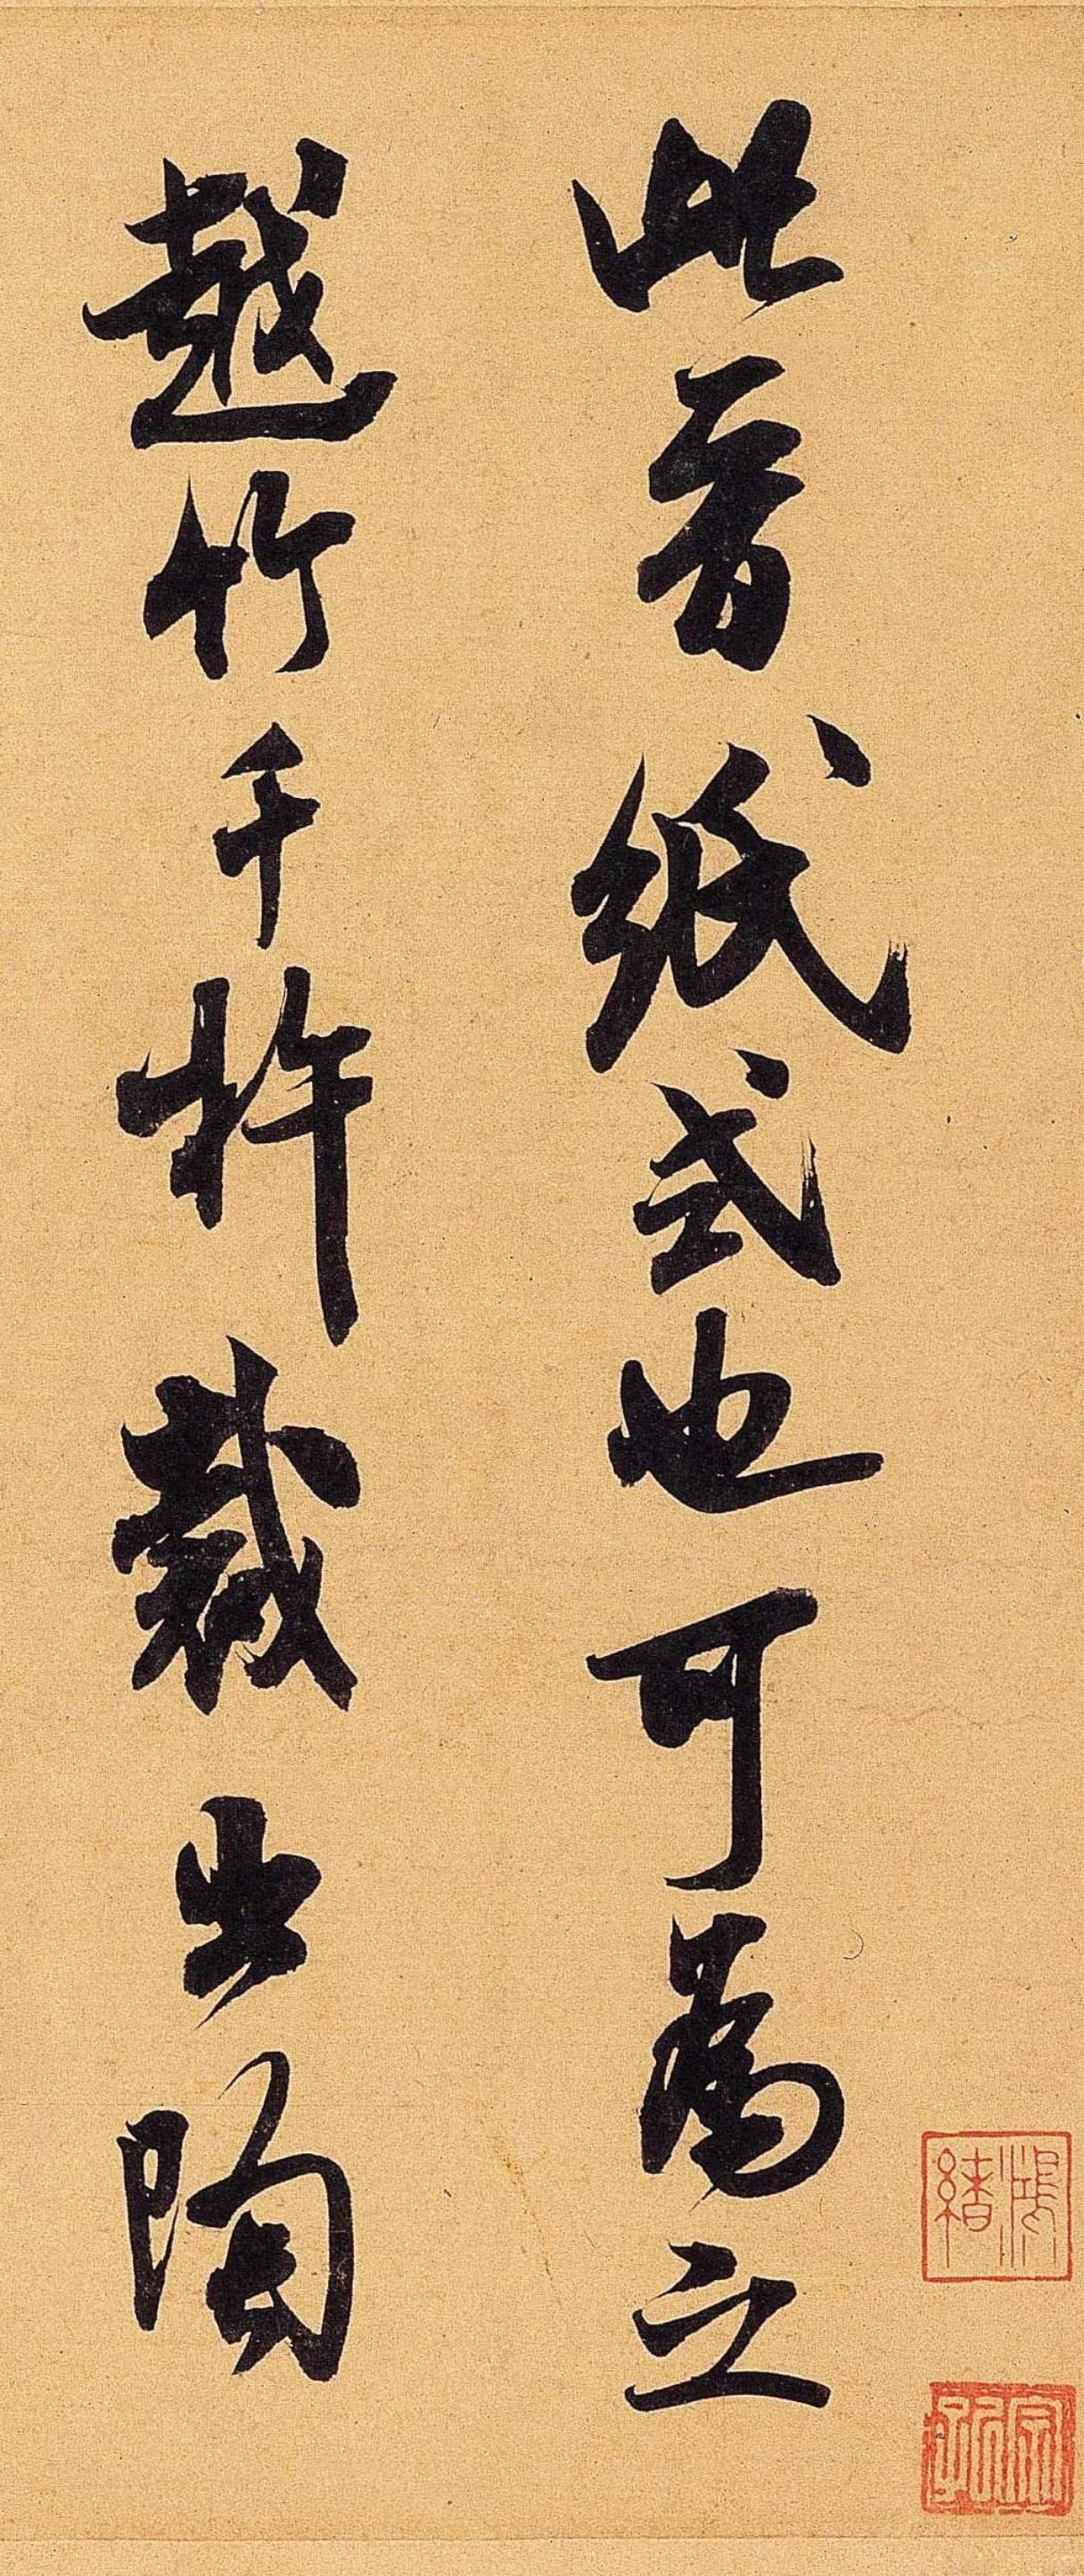 此晉紙式也可爲之
越竹千杵裁出陶